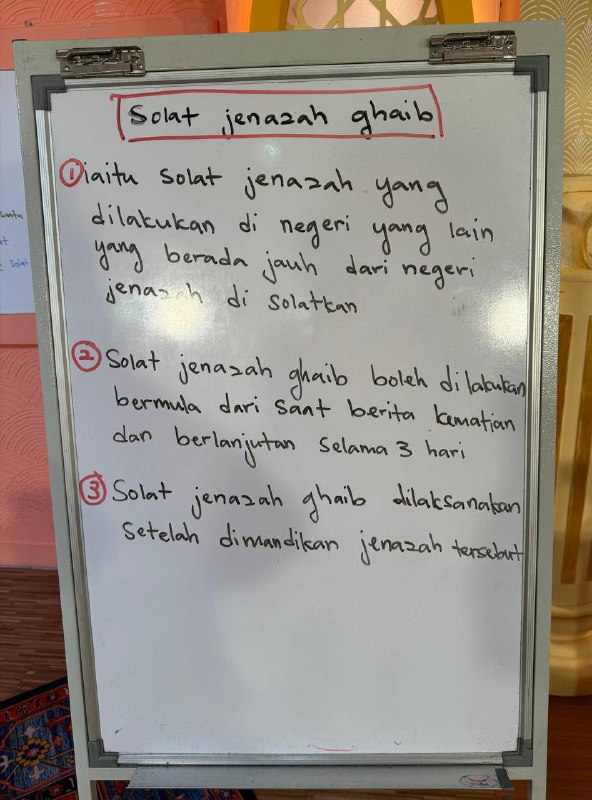 Solat jenazah ghaib
1 iaitu solat jenazah yang
dilakukan di negeri yang lain
yang berada jauh dari negeri
jenazah di solatkan
2 Solat jenazah ghaib boleh dilakukan
bermula dari saat berita kematian
dan berlanjutan selama 3 hari
3 Solat jenazah ghaib dilaksanakan
setelah dimandikan jenazah tersebut